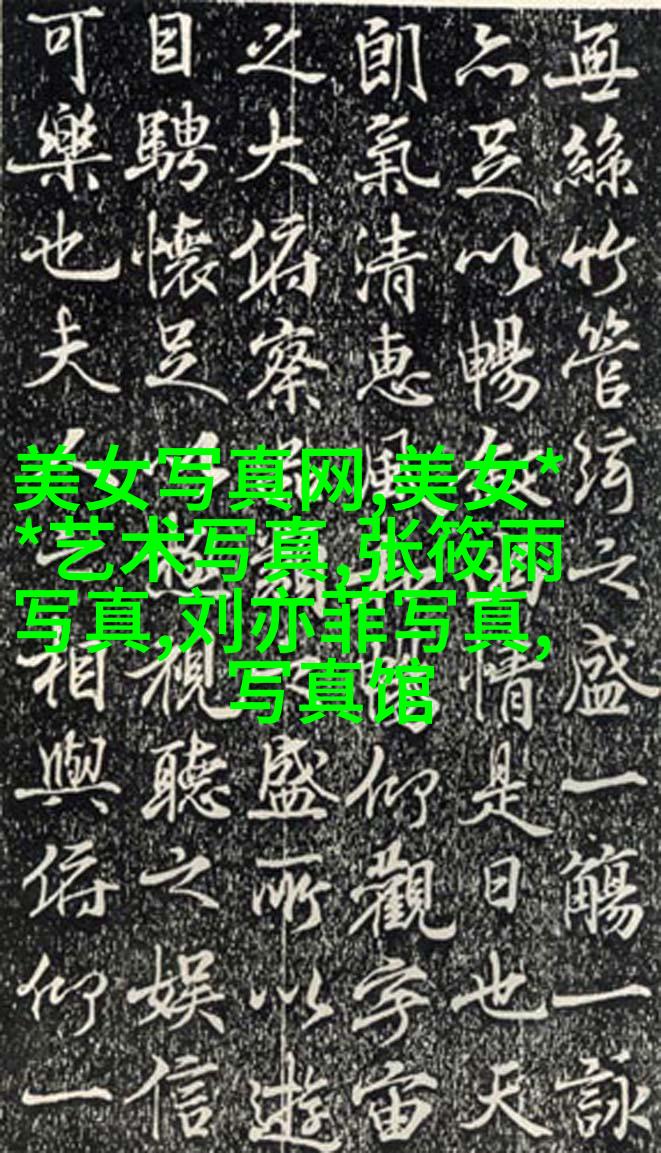 無絲竹管絃之盛一觴一詠
亦足以暢情是日也天
朗氣清惠風仰觀宇宙
之大俯察盛所以遊
目騁懷足視聽之娛信
可樂也夫相與俯仰一
美女写真网,美女*
*艺术写真,张筱雨
写真,刘亦菲写真,
写真馆